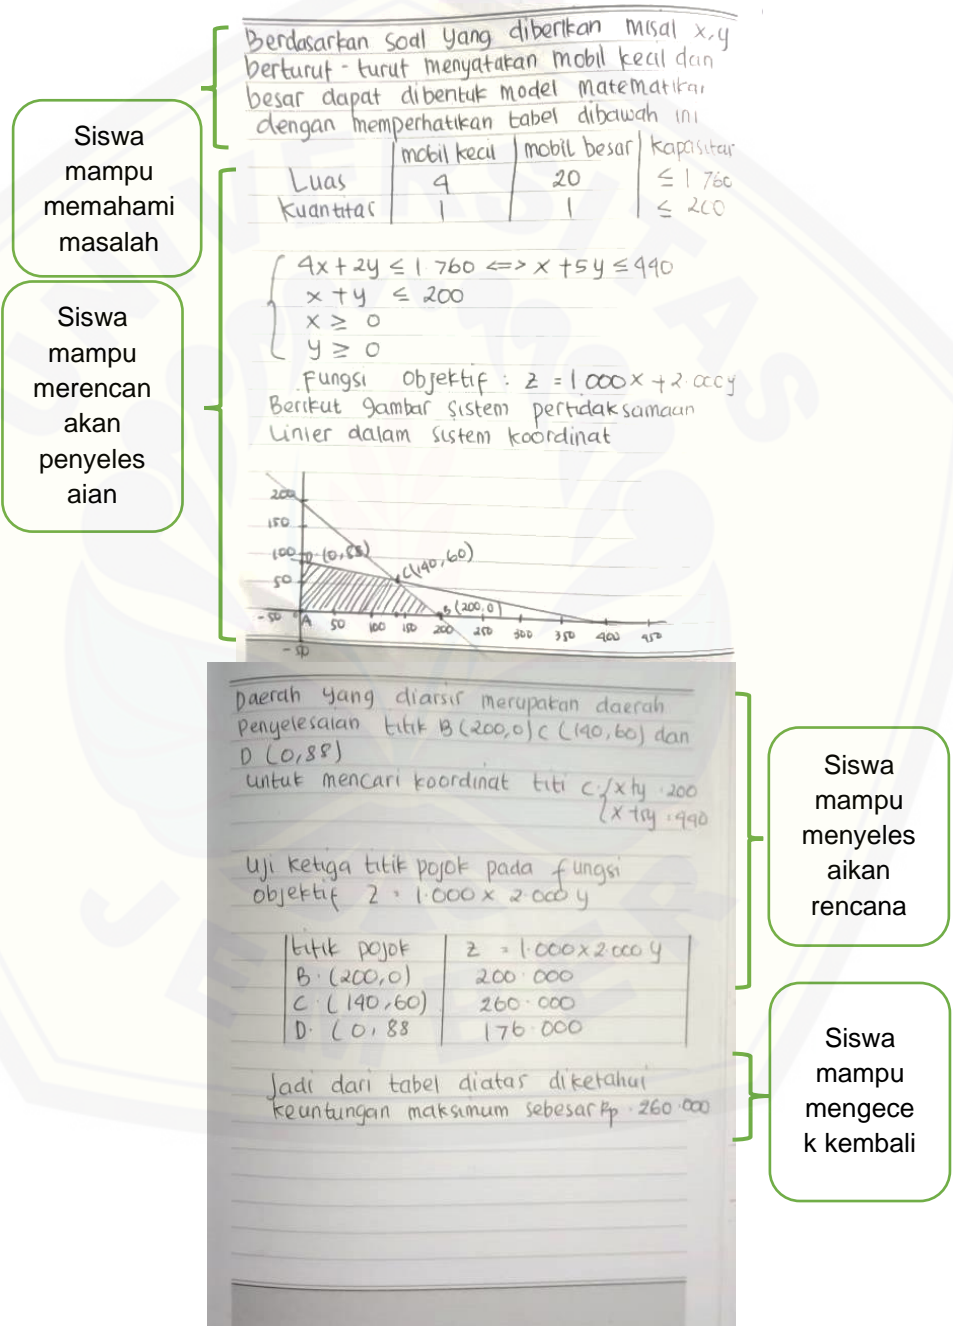 Berdasarkan soal yang diberikan misal x,y
berturut-turut menyatakan mobil kecil dan
besar dapat dibentuk model matematika
dengan memperhatikan tabel dibawah ini
mobil kecil mobil besar kapasitas
Luas 4 20 ≤ 1 760
Kuantitas 1 1 ≤ 200
4x + 2y ≤ 1.760 <=> x + 5y ≤ 440
x + y ≤ 200
x ≥ 0
y ≥ 0
Fungsi objektif : z = 1.000x + 2.000y
Berikut gambar sistem pertidaksamaan
Linier dalam sistem koordinat
200
150
100 D (0,88)
50 C(140,60)
B(200,0)
-50 A 50 100 150 200 250 300 350 400 450
-50
Siswa
mampu
memahami
masalah
Siswa
mampu
merencan
akan
penyeles
aian
Daerah yang diarsir merupakan daerah
Penyelesaian titik B(200,0) C(140,60) dan
D (0,88)
untuk mencari koordinat titi C. { x+y = 200
{ x+5y = 440
Uji ketiga titik pojok pada fungsi
objektif z = 1.000 x 2.000 y
titik pojok z = 1.000x2.000 y
B. (200,0) 200.000
C. (140,60) 260.000
D. (0,88 176.000
Jadi dari tabel diatas diketahui
keuntungan maksimum sebesar Rp. 260.000
Siswa
mampu
menyeles
aikan
rencana
Siswa
mampu
mengece
k kembali
UNIVERSITAS
JEMBER